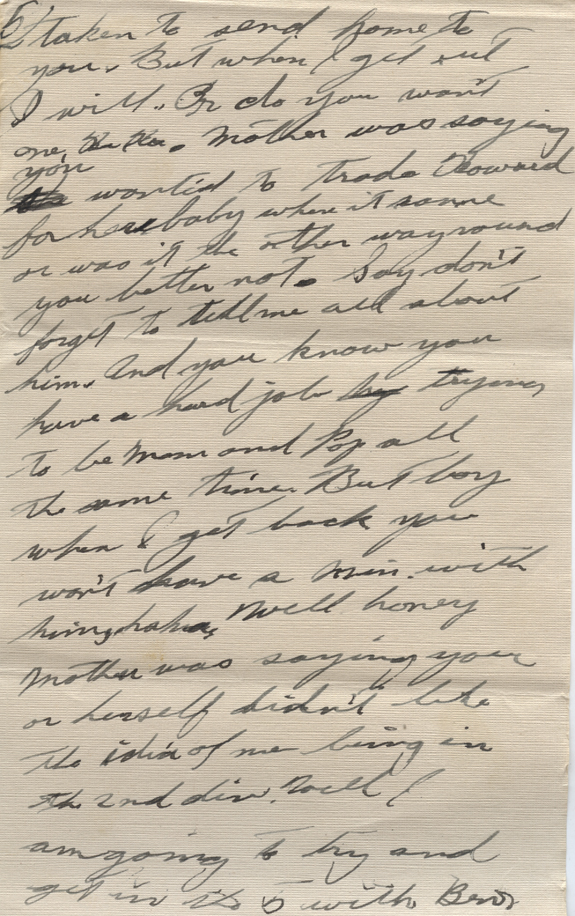 5/ taken to send home to
you. But when I get out
I will. Or do you want
one, Ha Ha. Mother was saying
you
wantid to trade Howard
for her baby when it came
or was it the other way round
you better not. Say don't
forget to tell me all about
him. And you know you
have a hard job trying
to be Mom and Pop all
the same time. But boy
when I get back you
won't have a min. with
him, haha, Well honey
Mother was saying you
or herself didn't like
the idia of me being in
the 2nd div. Well I
am going to try and
get in the 5 with